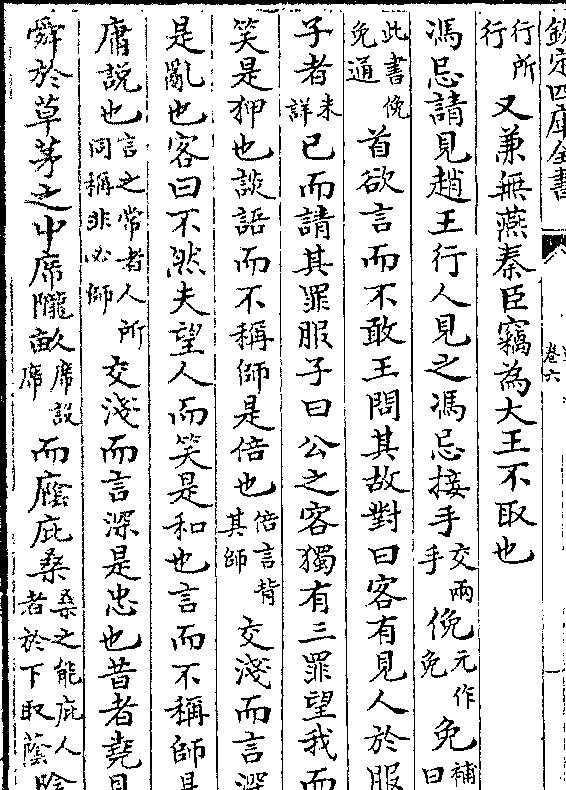 欽定四庫全書
卷六
行所行又兼無燕秦臣竊為大王不取也
馮忌請見趙王行人見之馮忌接手交兩手俛元作免免補曰
此書俛免通首欲言而不敢王問其故對曰客有見人於服
子者未詳已而請其罪服子曰公之客獨有三罪望我而
笑是狎也談語而不稱師是倍也倍言背其師交淺而言深
是亂也客曰不然夫望人而笑是和也言而不稱師是
庸說也言之常者人所同稱非必師交淺而言深是忠也昔者堯見
舜於草茅之中席隴畝席設席而廕庇桑桑之能庇人者於下取蔭